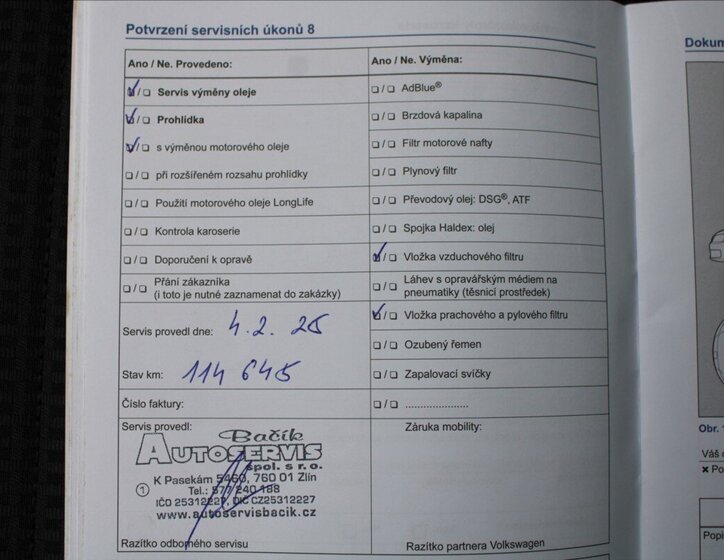 Potvrzení servisních úkonů 8
Ano / Ne. Provedeno:
☑/☐ Servis výměny oleje
☑/☐ Prohlídka
☑/☐ s výměnou motorového oleje
☐/☐ při rozšířeném rozsahu prohlídky
☐/☐ Použití motorového oleje LongLife
☐/☐ Kontrola karoserie
☐/☐ Doporučení k opravě
☐/☐ Přání zákazníka
(i toto je nutné zaznamenat do zakázky)
Servis provedl dne: 4.2.25
Stav km: 114 645
Číslo faktury:
Servis provedl:
Bačík
AUTOSERVIS
spol. s r.o.
K Pasekám 5460, 760 01 Zlín
① Tel.: 577 240 188
IČO 25312227, DIČ CZ25312227
www.autoservisbacik.cz
Razítko odborného servisu
Ano / Ne. Výměna:
☐/☐ AdBlue®
☐/☐ Brzdová kapalina
☐/☐ Filtr motorové nafty
☐/☐ Plynový filtr
☐/☐ Převodový olej: DSG®, ATF
☐/☐ Spojka Haldex: olej
☑/☐ Vložka vzduchového filtru
☐/☐ Láhev s opravářským médiem na
pneumatiky (těsnicí prostředek)
☑/☐ Vložka prachového a pylového filtru
☐/☐ Ozubený řemen
☐/☐ Zapalovací svíčky
☐/☐ .....................
Záruka mobility:
Razítko partnera Volkswagen
Dokum
Obr. 1
Váš
× Po
Popi